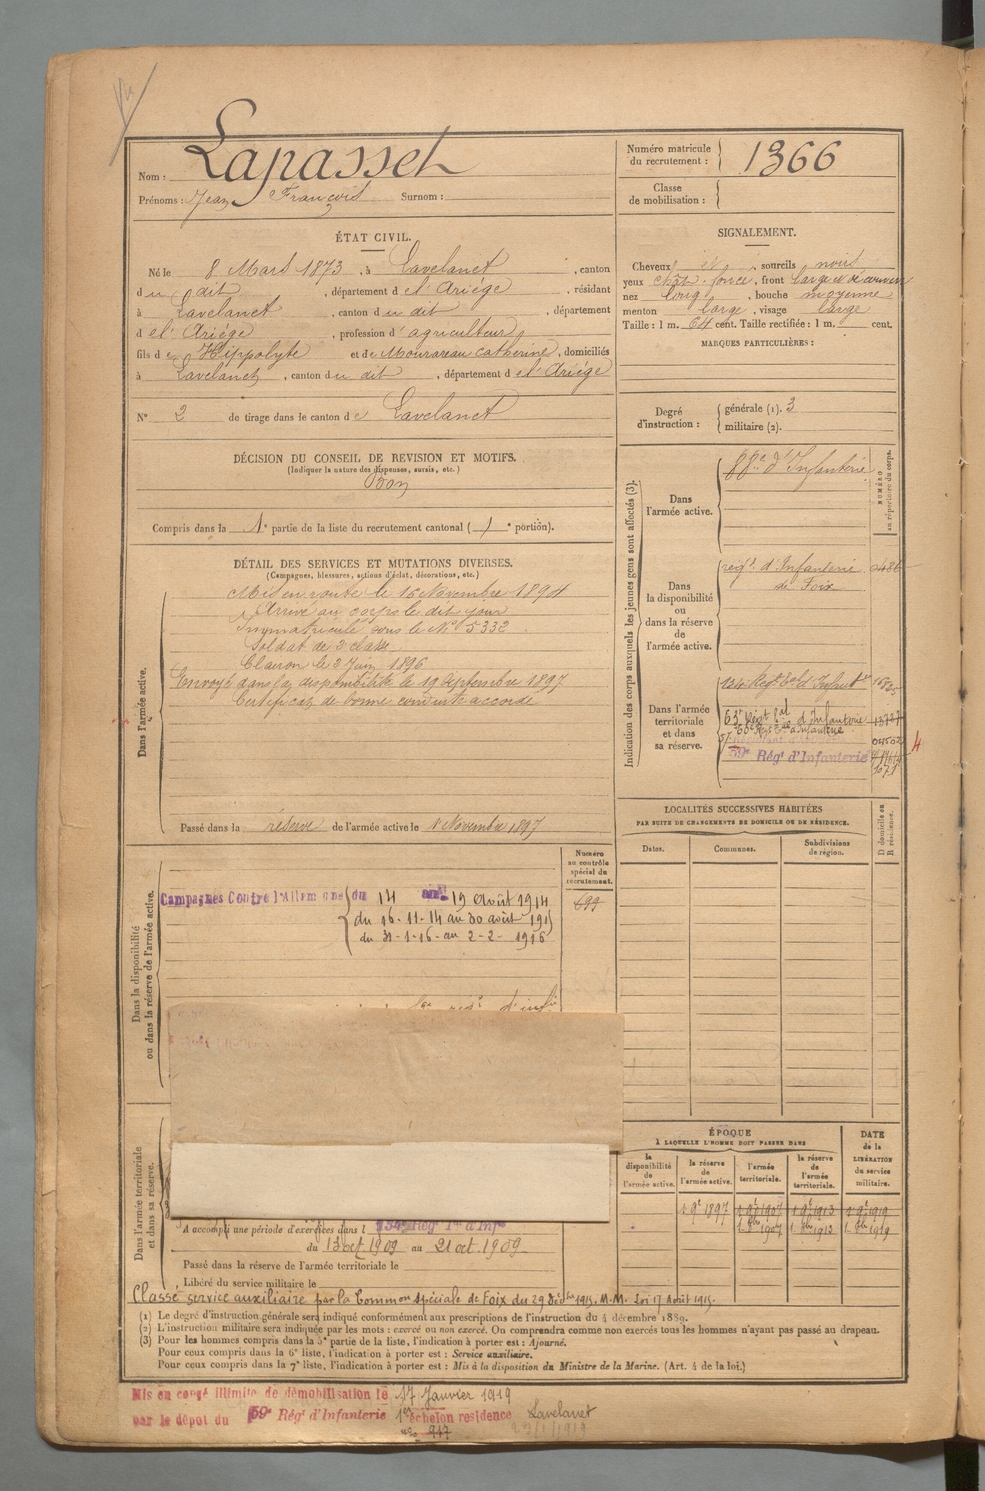 Nom : Lapasset
Prénoms : Jean François Surnom :
Numéro matricule du recrutement : 1366
Classe de mobilisation :
ÉTAT CIVIL.
Né le 8 Mars 1873, à Lavelanet, canton
du dit, département de l'Ariège, résidant
à Lavelanet, canton du dit, département
de l'Ariège, profession d'agriculteur
fils de Hippolyte et de Mourareau Catherine, domiciliés
à Lavelanet, canton du dit, département de l'Ariège
N° 2 de tirage dans le canton de Lavelanet
SIGNALEMENT.
Cheveux et, sourcils noirs
yeux chât. foncé, front large et découvert
nez long, bouche moyenne
menton large, visage large
Taille : 1 m. 64 cent. Taille rectifiée : 1 m. cent.
MARQUES PARTICULIÈRES :
Degré d'instruction : générale (1). 3
militaire (2).
DÉCISION DU CONSEIL DE REVISION ET MOTIFS.
(Indiquer la nature des dispenses, sursis, etc.)
Bon
Compris dans la 1e partie de la liste du recrutement cantonal (1e portion).
DÉTAIL DES SERVICES ET MUTATIONS DIVERSES.
(Campagnes, blessures, actions d'éclat, décorations, etc.)
Dans l'armée active.
Mis en route le 16 Novembre 1894
Arrivé au corps le dit jour
Immatriculé sous le N° 5332
Soldat de 2e classe
Clairon le 2 Juin 1896
Envoyé dans la disponibilité le 19 Septembre 1897
Certificat de bonne conduite accordé
Passé dans la réserve de l'armée active le 1 Novembre 1897
Indication des corps auxquels les jeunes gens sont affectés (3).
NUMÉRO au répertoire du corps.
Dans l'armée active.
88e d'Infanterie
Dans la disponibilité ou dans la réserve de l'armée active.
regt. d'Infanterie
de Foix
Dans l'armée territoriale et dans sa réserve.
134 Regt Tal d'Infant
63e Regt Tal d'Infanterie
59e Régt d'Infanterie
4
LOCALITÉS SUCCESSIVES HABITÉES
PAR SUITE DE CHANGEMENTS DE DOMICILE OU DE RÉSIDENCE.
Dates.
Communes.
Subdivisions de région.
D domicile ou R résidence.
Dans la disponibilité ou dans la réserve de l'armée active.
Numéro au contrôle spécial du recrutement.
499
Campagnes Contre l'Allemagne du 14 au 19 août 1914
du 16-11-14 au 30 août 1915
du 31-1-16 au 2-2-1916
regt d'infie
Dans l'armée territoriale et dans sa réserve.
A accompli une période d'exercices dans l 134e Régt Tal d'Infie
du 13 oct. 1909 au 21 oct. 1909
Passé dans la réserve de l'armée territoriale le
Libéré du service militaire le
Classé service auxiliaire par la Common spéciale de Foix du 29 Décbre 1915. M.M. Loi 17 Août 1915.
ÉPOQUE
À LAQUELLE L'HOMME DOIT PASSER DANS
la disponibilité de l'armée active.
la réserve de l'armée active.
l'armée territoriale.
la réserve de l'armée territoriale.
DATE de la LIBÉRATION du service militaire.
1 9e 1897
1 9e 1907
1 9e 1913
1 9e 1919
1. 8bre 1907
1. 8bre 1913
1. 8bre 1919
(1) Le degré d'instruction générale sera indiqué conformément aux prescriptions de l'instruction du 4 décembre 1889.
(2) L'instruction militaire sera indiquée par les mots : exercé ou non exercé. On comprendra comme non exercés tous les hommes n'ayant pas passé au drapeau.
(3) Pour les hommes compris dans la 5e partie de la liste, l'indication à porter est : Ajourné.
Pour ceux compris dans la 6e liste, l'indication à porter est : Service auxiliaire.
Pour ceux compris dans la 7e liste, l'indication à porter est : Mis à la disposition du Ministre de la Marine. (Art. 4 de la loi.)
Mis en congé illimité de démobilisation le 17 Janvier 1919
par le dépôt du 59e Régt d'Infanterie 1er échelon résidence Lavelanet
no 917